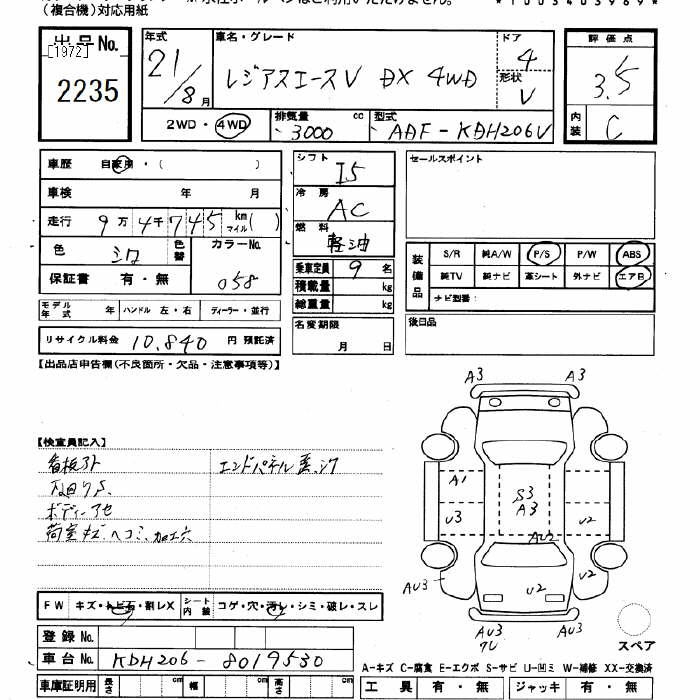 (複合機)対応用紙
*1003403969*
出品No.
[1972]
2235
年式
21/8月
車名・グレード
レジアスエースV DX 4WD
ドア
4
形状
V
評価点
3.5
内装
C
2WD・4WD
排気量
3000 cc
型式
ADF-KDH206V
車歴 自家用・( )
車検 年 月
走行 9万4千745 km マイル( )
色 シロ 色替
カラーNo.
058
保証書 有・無
モデル年式 年 ハンドル 左・右 ディーラー・並行
リサイクル料金 10,840 円 預託済
シフト
I5
冷房
AC
燃料
軽油
乗車定員 9 名
積載量 kg
総重量 kg
名変期限
月 日
セールスポイント
装備品
S/R 純A/W P/S P/W ABS
純TV 純ナビ 革シート 外ナビ エアB
ナビ型番:
後日品
【出品店申告欄(不良箇所・欠品・注意事項等)】
【検査員記入】
看板アト
エンドパネル
ボディーアセ
荷室キズ、ヘコミ、加工穴
FW キズ・トビ石・割レX
シート内装 コゲ・穴・汚レ・シミ・破レ・スレ
登録No.
車台No. KDH206-8019530
車庫証明用 長さ cm 幅 cm 高さ cm
A3 A3
A1
S3
A3
U3
AU2
U2
AU3
U2
U2
AU3
AU3
AU3
スペア
A-キズ C-腐食 E-エクボ S-サビ U-凹ミ W-補修 XX-交換済
工具 有・無 ジャッキ 有・無